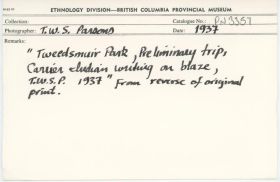 ETHNOLOGY DIVISION—BRITISH COLUMBIA PROVINCIAL MUSEUM
Collection: Catalogue No.: PN 3357
Photographer: T.W.S. Parsons Date: 1937
Remarks:
"Tweedsmuir Park, Preliminary trip,
Carrier Indian writing on blaze,
T.W.S.P. 1937" From reverse of original
print.